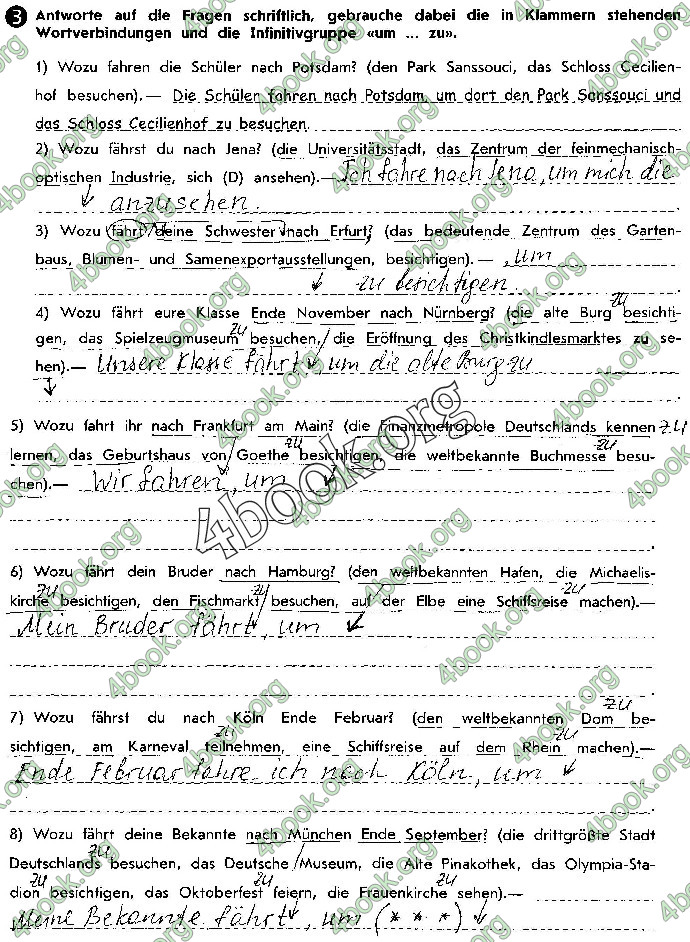 3 Antworte auf die Fragen schriftlich, gebrauche dabei die in Klammern stehenden
Wortverbindungen und die Infinitivgruppe «um ... zu».
1) Wozu fahren die Schüler nach Potsdam? (den Park Sanssouci, das Schloss Cecilien-
hof besuchen).— Die Schülen fahren nach Potsdam um dort den Park Sanssouci und
das Schloss Cecilienhof zu besuchen.
2) Wozu fährst du nach Jena? (die Universitätsstadt, das Zentrum der feinmechanisch-
optischen Industrie, sich (D) ansehen).— Ich fahre nach Jena, um mich die
anzusehen.
3) Wozu fährt deine Schwester nach Erfurt? (das bedeutende Zentrum des Garten-
baus, Blumen- und Samenexportausstellungen, besichtigen).— , um
zu besichtigen.
4) Wozu fährt eure Klasse Ende November nach Nürnberg? (die alte Burg zu besichti-
gen, das Spielzeugmuseum zu besuchen, die Eröffnung des Christkindlesmarktes zu se-
hen).— Unsere Klasse fährt , um die alte Burg zu
5) Wozu fahrt ihr nach Frankfurt am Main? (die Finanzmetropole Deutschlands kennen zu
lernen, das Geburtshaus von Goethe zu besichtigen, die weltbekannte Buchmesse zu besu-
chen).— Wir fahren, um
6) Wozu fährt dein Bruder nach Hamburg? (den weltbekannten Hafen, die Michaelis-
kirche zu besichtigen, den Fischmarkt zu besuchen, auf der Elbe eine Schiffsreise zu machen).—
Mein Bruder fährt, um
7) Wozu fährst du nach Köln Ende Februar? (den weltbekannten Dom zu be-
sichtigen, am Karneval zu teilnehmen, eine Schiffsreise auf dem Rhein zu machen).—
Ende Februar fahre ich nach Köln, um
8) Wozu fährt deine Bekannte nach München Ende September? (die drittgrößte Stadt
Deutschlands zu besuchen, das Deutsche Museum, die Alte Pinakothek, das Olympia-Sta-
dion zu besichtigen, das Oktoberfest zu feiern, die Frauenkirche zu sehen).—
Meine Bekannte fährt, um (* * *)
4book.org